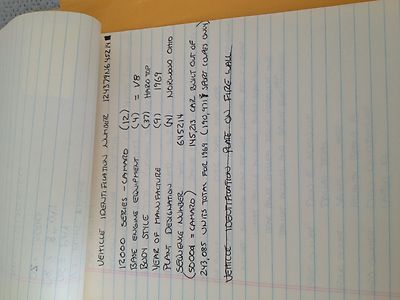 VEHICLE IDENTIFICATION NUMBER 124379N645214
12000 SERIES - CAMARO (12)
BASE ENGINE EQUIPMENT (4) = V8
BODY STYLE (37) HARD TOP
YEAR OF MANUFACTURE (9) 1969
PLANT DESIGNATION (N) NORWOOD OHIO
SEQUENCE NUMBER 645214
(500001 = CAMARO) 145,213 CAR BUILT OUT OF
243,085 UNITS TOTAL FOR 1969 (190,971 SPORT COUPES ONLY)
VEHICLE IDENTIFICATION PLATE ON FIRE WALL